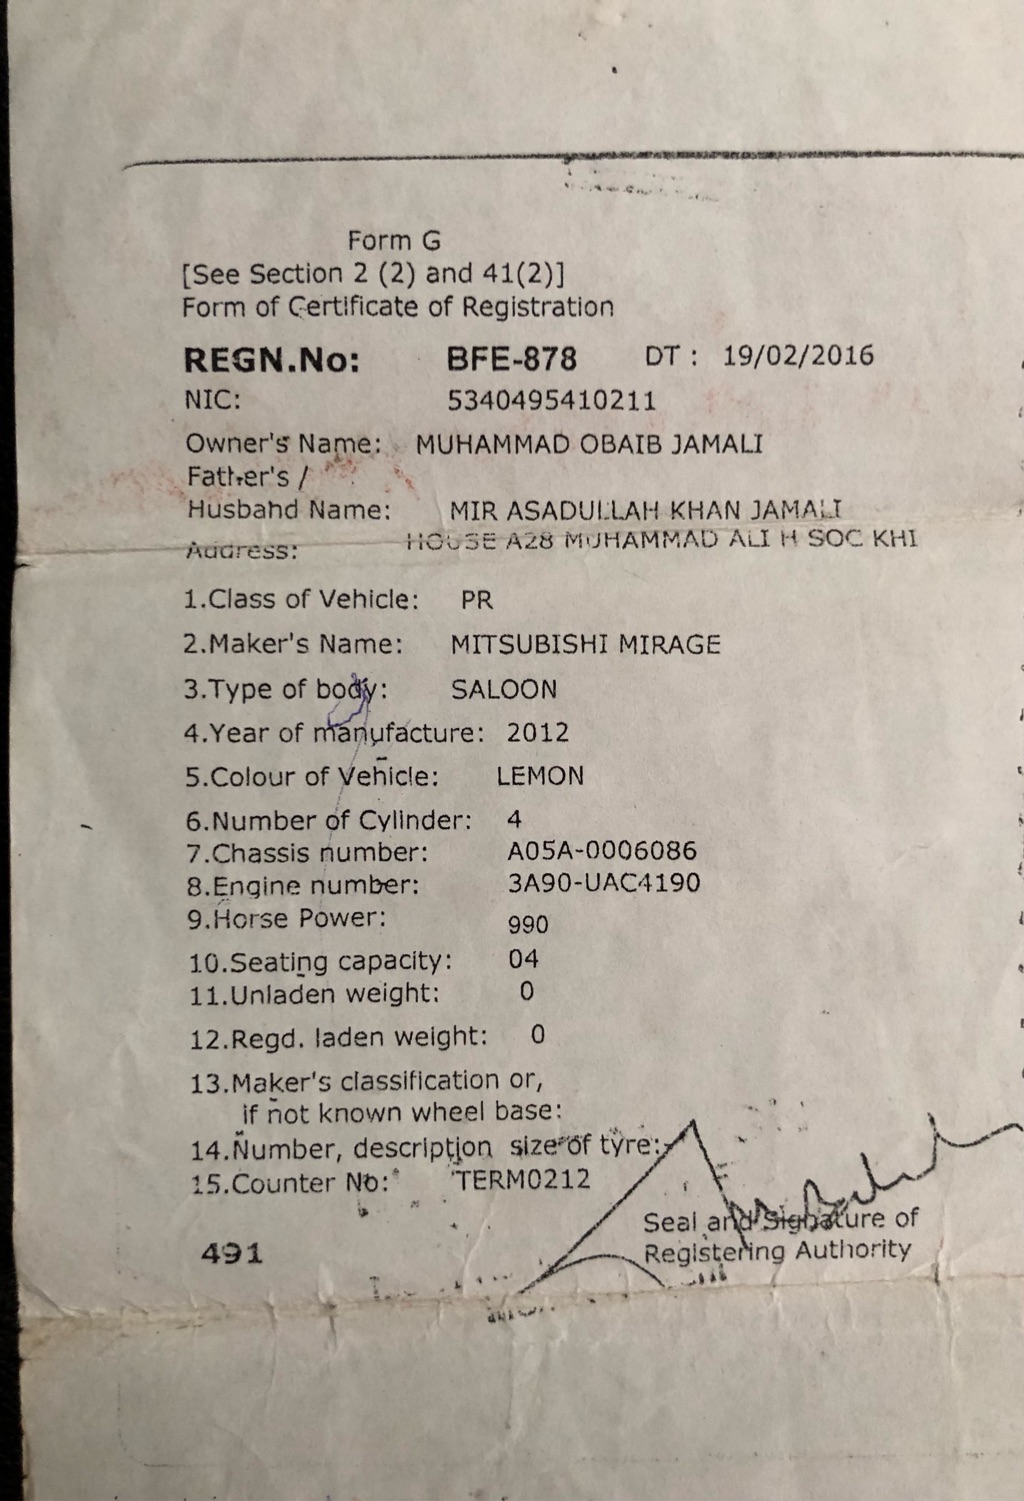 Form G
[See Section 2 (2) and 41(2)]
Form of Certificate of Registration
REGN.No: BFE-878 DT : 19/02/2016
NIC: 5340495410211
Owner's Name: MUHAMMAD OBAIB JAMALI
Father's /
Husband Name: MIR ASADULLAH KHAN JAMALI
Address: HOUSE A28 MUHAMMAD ALI H SOC KHI
1.Class of Vehicle: PR
2.Maker's Name: MITSUBISHI MIRAGE
3.Type of body: SALOON
4.Year of manufacture: 2012
5.Colour of Vehicle: LEMON
6.Number of Cylinder: 4
7.Chassis number: A05A-0006086
8.Engine number: 3A90-UAC4190
9.Horse Power: 990
10.Seating capacity: 04
11.Unladen weight: 0
12.Regd. laden weight: 0
13.Maker's classification or,
if not known wheel base:
14.Number, description size of tyre:
15.Counter No: TERM0212
Seal and Signature of
491 Registering Authority